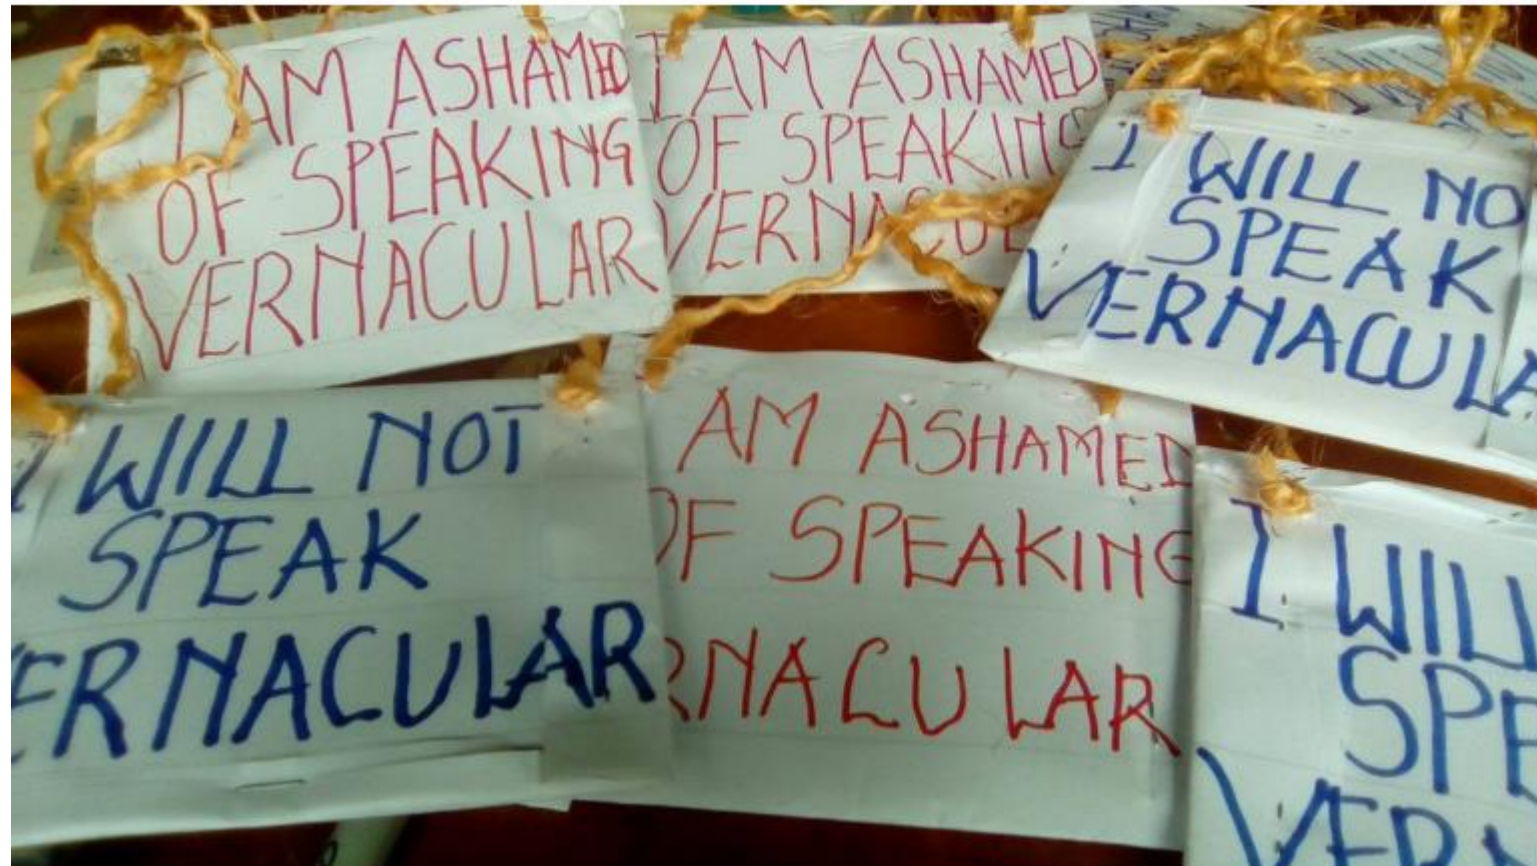 I AM ASHAMED
OF SPEAKING
VERNACULAR
I AM ASHAMED
OF SPEAKING
VERNACUL
I WILL NO
SPEAK
VERNACULA
I WILL NOT
SPEAK
ERNACULAR
AM ASHAMED
OF SPEAKING
RNACULAR
I WILL
SPE
VERN